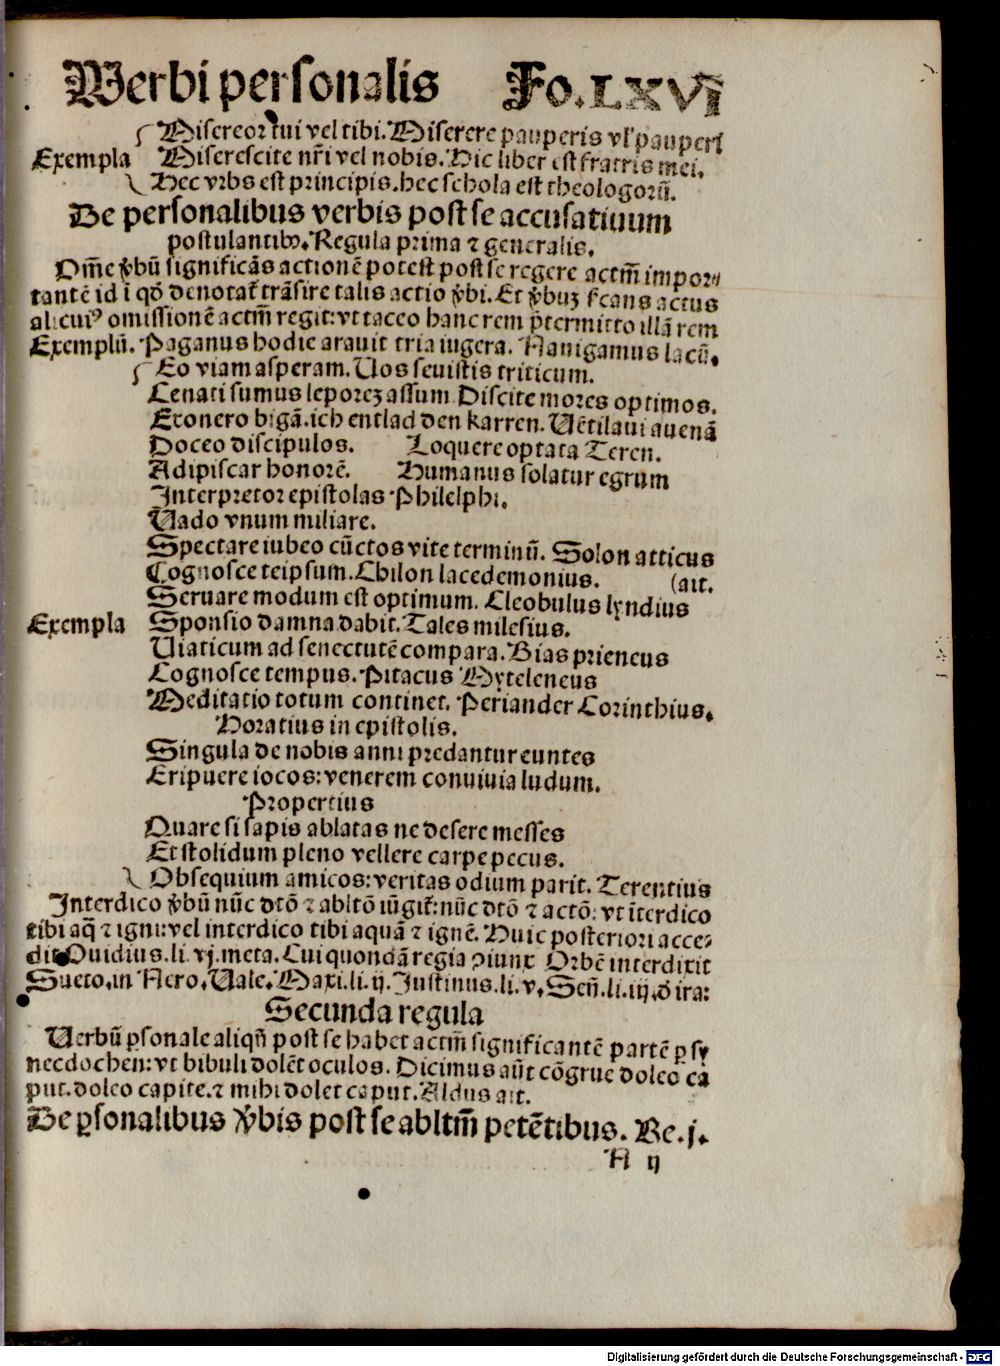 Verbi personalis Fo. LXVI
Misereor tui vel tibi. Miserere pauperis vl' pauperi
Exempla Miserescite nr̃i vel nobis. Hic liber est fratris mei.
Hec vrbs est principis. hec schola est theologorũ.
De personalibus verbis post se accusatiuum
postulantibꝰ. Regula prima ⁊ generalis.
Om̃e v̾bũ significãs actionẽ potest post se regere actm̃ impor⸗
tantẽ id ĩ qđ denotat̃ trãsire talis actio v̾bi. Et v̾buꝫ s̾cans actus
alicuiꝰ omissionẽ actm̃ regit: vt taceo hanc rem p̃termitto illã rem
Exemplũ. Paganus hodie arauit tria iugera. Nauigamus lacũ.
Eo viam asperam. Uos seuistis triticum.
Cenati sumus leporeꝫ assum Discite mores optimos.
Exonero bigã. ich entlad den karren. Uẽtilaui auenã
Doceo discipulos. Loquere optata Teren.
Adipiscar honorẽ. Humanus solatur egrum
Interpretor epistolas Philelphi.
Uado vnum miliare.
Spectare iubeo cũctos vite terminũ. Solon atticus
Cognosce teipsum. Chilon lacedemonius. (ait.
Seruare modum est optimum. Cleobulus lyndius
Exempla Sponsio damna dabit. Tales milesius.
Uiaticum ad senectutẽ compara. Bias prieneus
Cognosce tempus. Pitacus Myteleneus
Meditatio totum continet. Periander Corinthius.
Horatius in epistolis.
Singula de nobis anni predantur euntes
Eripuere iocos: venerem conuiuia ludum.
Propertius
Quare si sapis ablatas ne desere messes
Et stolidum pleno vellere carpe pecus.
Obsequium amicos: veritas odium parit. Terentius
Interdico v̾bũ nũc dtõ ⁊ abltõ iũgit̃: nũc dtõ ⁊ actõ: vt ĩterdico
tibi aq̃ ⁊ igni: vel interdico tibi aquã ⁊ ignẽ. Huic posteriori acce⸗
dit Ouidius. li. vj. meta. Cui quondã regia ꝯiunx Orbẽ interdixit
Sueto. in Nero. Uale. Maxi. li. ij. Justinus. li. v. Señ. li. iij. đ ira:
Secunda regula
Uerbũ ꝑsonale aliqñ post se habet actm̃ significantẽ partẽ ꝑ sy
necdochen: vt bibuli dolẽt oculos. Dicimus aũt cõgrue doleo ca
put. doleo capite. ⁊ mihi dolet caput. Aldus ait.
De ꝑsonalibus v̾bis post se abltm̃ petẽtibus. Re. j.
N ij
Digitalisierung gefördert durch die Deutsche Forschungsgemeinschaft - DFG